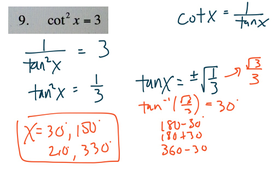 9. cot²x = 3
cotx = 1/tanx
1/tan²x = 3
tan²x = 1/3
tanx = ±√(1/3) → √3/3
tan⁻¹(√3/3) = 30°
180-30°
180+30
360-30
x = 30°, 150°
210, 330°